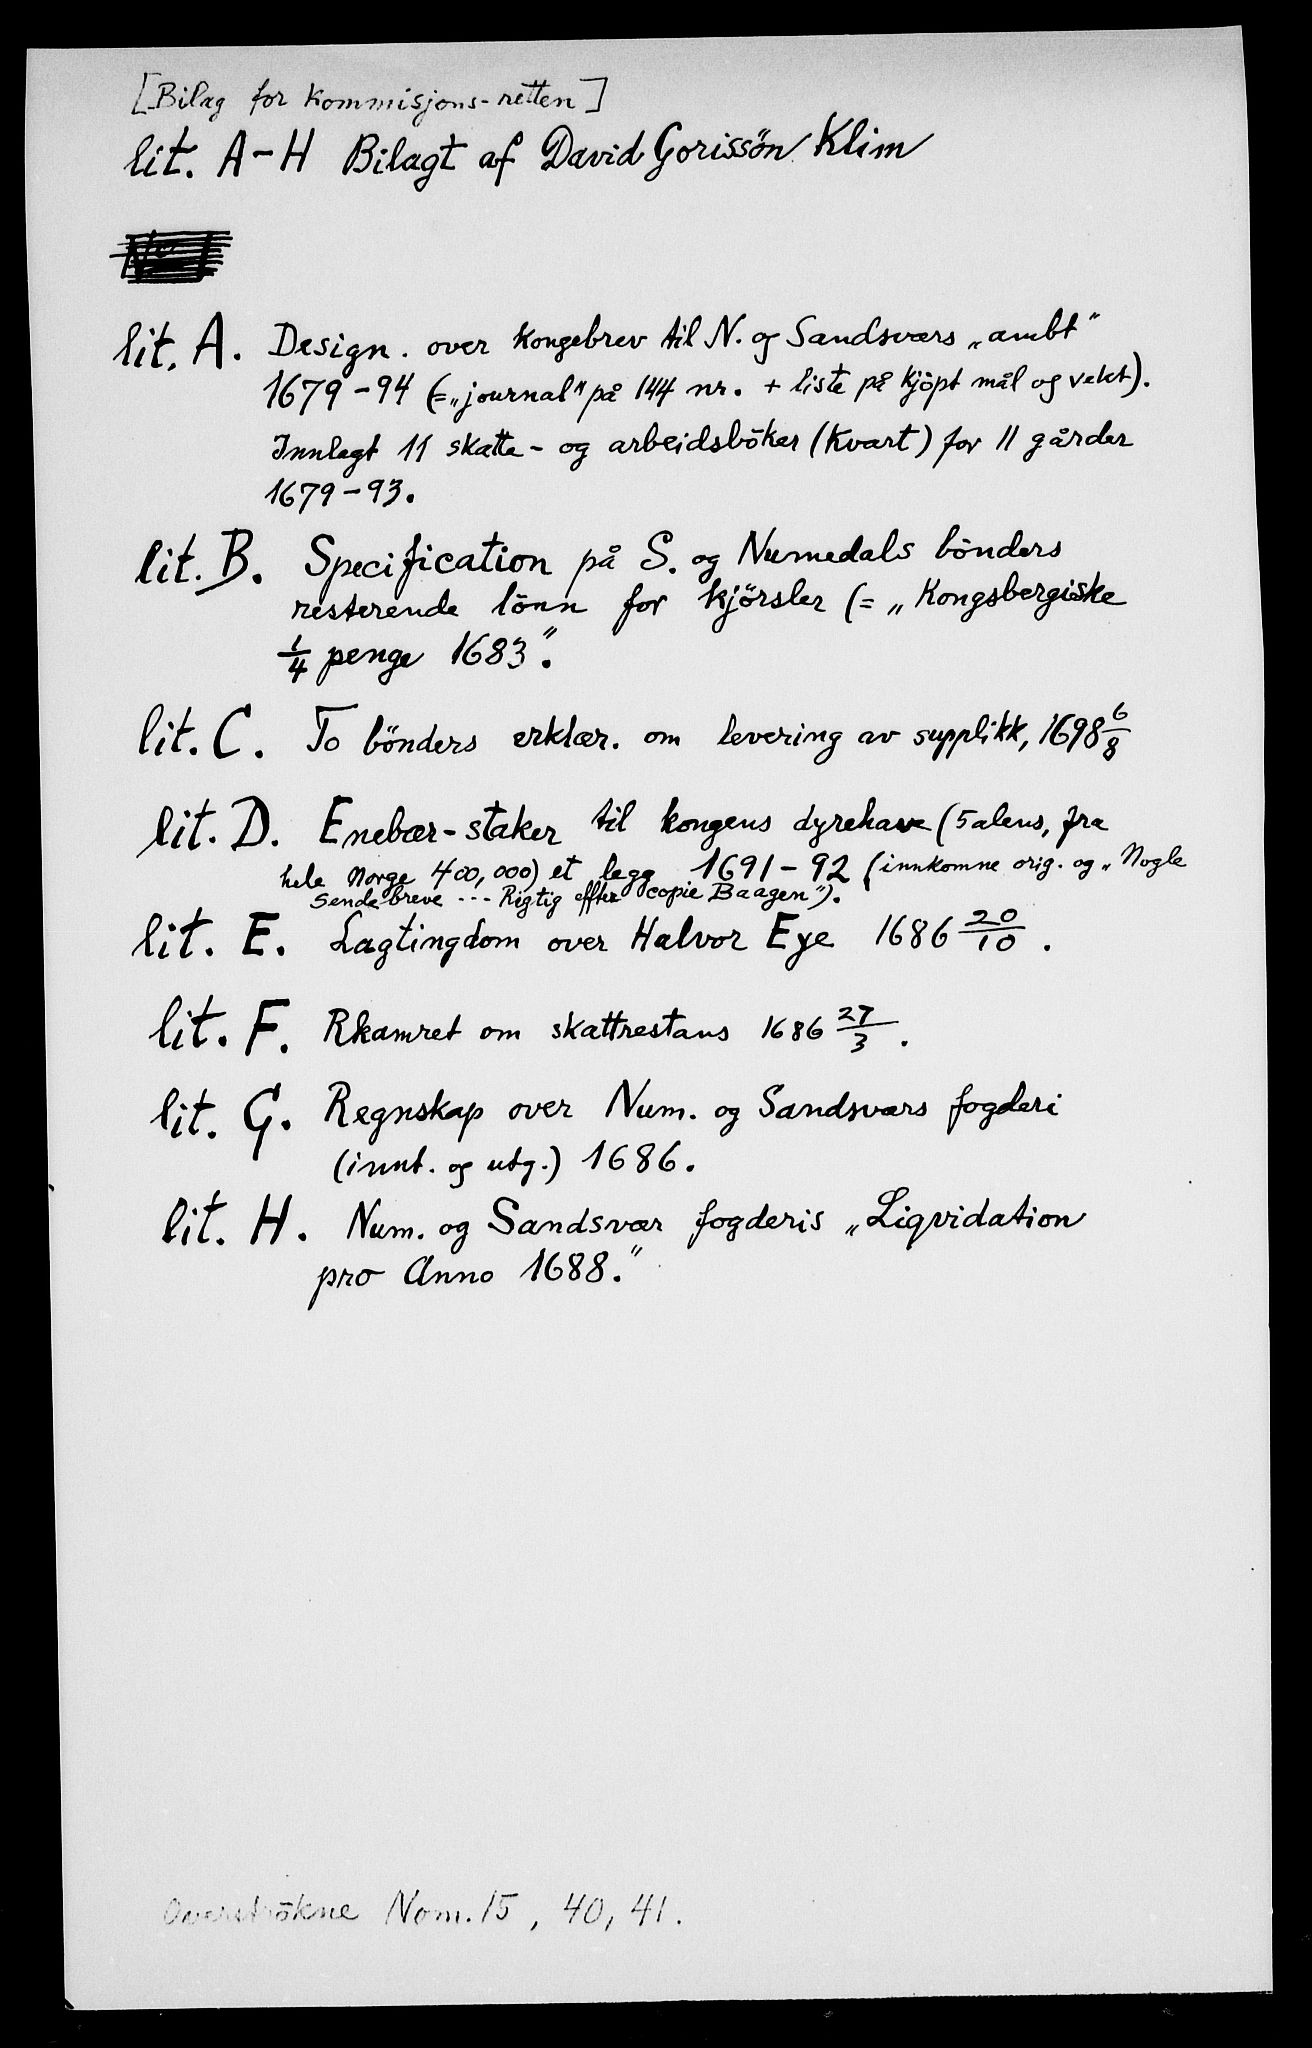 [Bilag for kommisjons-retten]
lit. A-H Bilagt af David Gorissön Klim
lit. A. Design. over kongebrev til N. og Sandsværs „ambt"
1679-94 (=„journal" på 144 nr. + liste på kjöpt mål og vekt).
Innlagt 11 skatte- og arbeidsböker (kvart) for 11 gårder
1679-93.
lit. B. Specification på S. og Numedals bönders
resterende lönn for kjörsler (= „Kongsbergiske
1/4 penge 1683".
lit. C. To bönders erklær. om levering av supplikk, 1698 6/8
lit. D. Enebær-staker til kongens dyrehave (5 alens, fra
hele Norge 400,000) et legg 1691-92 (innkomne orig. og „Nogle
Sendebreve --- Rigtig effter copie Baagen").
lit. E. Lagtingdom over Halvor Eye 1686 20/10.
lit. F. Rkamret om skattrestans 1686 27/3.
lit. G. Regnskap over Num. og Sandsværs fogderi
(innt. og utg.) 1686.
lit. H. Num. og Sandsvær fogderis „Liqvidation
pro Anno 1688."
Overströkne Nom. 15, 40, 41.